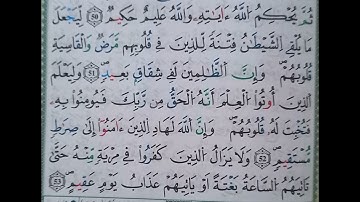 ثُمَّ يُحْكِمُ ٱللَّهُ ءَايَٰتِهِۦ وَٱللَّهُ عَلِيمٌ حَكِيمٌ ٥٢ لِّيَجْعَلَ
مَا يُلْقِى ٱلشَّيْطَٰنُ فِتْنَةً لِّلَّذِينَ فِى قُلُوبِهِم مَّرَضٌ وَٱلْقَاسِيَةِ
قُلُوبُهُمْ وَإِنَّ ٱلظَّٰلِمِينَ لَفِى شِقَاقٍۭ بَعِيدٍ ٥٣ وَلِيَعْلَمَ
ٱلَّذِينَ أُوتُوا۟ ٱلْعِلْمَ أَنَّهُ ٱلْحَقُّ مِن رَّبِّكَ فَيُؤْمِنُوا۟ بِهِۦ
فَتُخْبِتَ لَهُۥ قُلُوبُهُمْ وَإِنَّ ٱللَّهَ لَهَادِ ٱلَّذِينَ ءَامَنُوٓا۟ إِلَىٰ صِرَٰطٍ
مُّسْتَقِيمٍ ٥٤ وَلَا يَزَالُ ٱلَّذِينَ كَفَرُوا۟ فِى مِرْيَةٍ مِّنْهُ حَتَّىٰ
تَأْتِيَهُمُ ٱلسَّاعَةُ بَغْتَةً أَوْ يَأْتِيَهُمْ عَذَابُ يَوْمٍ عَقِيمٍ ٥٥